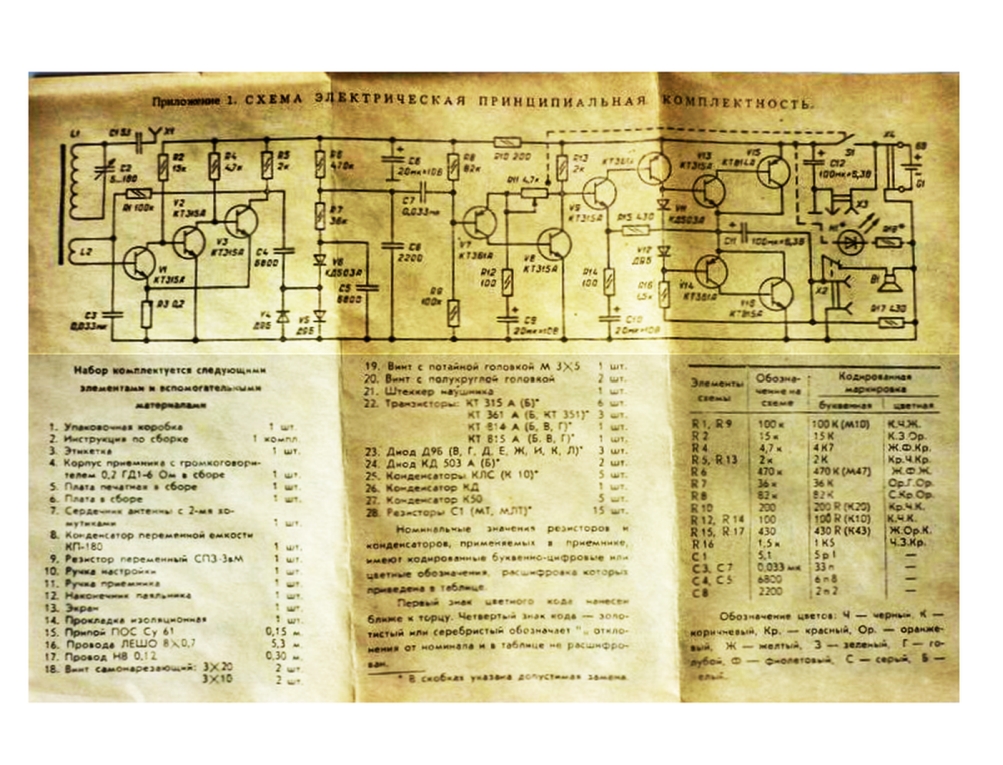 Приложение 1. СХЕМА ЭЛЕКТРИЧЕСКАЯ ПРИНЦИПИАЛЬНАЯ КОМПЛЕКТНОСТЬ.
L1
C1 5,1
X1
C2
5...180
R1 100к
R2
15к
R4
4,7к
R5
2к
R6
470к
C6
20мк×10В
R8
82к
R10 200
R11 4,7к
R13
2к
КТ361А
V13
КТ315А
V15
КТ814А
S1
C12
100мк×6,3В
X4
GB
G1
V2
КТ315А
V3
КТ315А
R7
36к
C7
0,033мк
V9
КТ315А
КД503А
X3
L2
V1
КТ315А
C4
6800
V6
КД503А
C8
2200
V7
КТ361А
V8
КТ315А
R15 430
C11
100мк×6,3В
R3 0,2
C5
6800
R12
100
R14
100
V12
Д9Б
R16
1,5к
V14
КТ361А
V16
КТ815А
X2
B1
C3
0,033мк
V4
Д9Б
V5
Д9Б
R9
100к
C9
20мк×10В
C10
20мк×10В
R17 430
Набор комплектуется следующими
элементами и вспомогательными
материалами
1. Упаковочная коробка 1 шт.
2. Инструкция по сборке 1 компл.
3. Этикетка 1 шт.
4. Корпус приемника с громкоговори-
телем 0,2 ГД1-6 Ом в сборе 1 шт.
5. Плата печатная в сборе 1 шт.
6. Плата в сборе 1 шт.
7. Сердечник антенны с 2-мя хо-
мутиками 1 шт.
8. Конденсатор переменной емкости
КП-180 1 шт.
9. Резистор переменный СПЗ-3вМ 1 шт.
10. Ручка настройки 1 шт.
11. Ручка приемника 1 шт.
12. Наконечник паяльника 1 шт.
13. Экран 1 шт.
14. Прокладка изоляционная 1 шт.
15. Припой ПОС Су 61 0,15 м.
16. Провода ЛЕШО 8×0,7 5,3 м.
17. Провод НВ 0,12 0,30 м.
18. Винт самонарезающий: 3×20 2 шт.
3×10 2 шт.
19. Винт с потайной головкой М 3×5 1 шт.
20. Винт с полукруглой головкой 2 шт.
21. Штеккер наушника 1 шт.
22. Транзисторы: КТ 315 А (Б)* 6 шт.
КТ 361 А (Б, КТ 351)* 3 шт.
КТ 814 А (Б, В, Г)* 1 шт.
КТ 815 А (Б, В, Г)* 1 шт.
23. Диод Д9Б (В, Г, Д, Е, Ж, И, К, Л)* 3 шт.
24. Диод КД 503 А (Б)* 2 шт.
25. Конденсаторы КЛС (К 10)* 5 шт.
26. Конденсатор КД 1 шт.
27. Конденсатор К50 5 шт.
28. Резисторы С1 (МТ, МЛТ)* 15 шт.
Номинальные значения резисторов и
конденсаторов, применяемых в приемнике,
имеют кодированные буквенно-цифровые или
цветные обозначения, расшифровка которых
приведена в таблице.
Первый знак цветного кода нанесен
ближе к торцу. Четвертый знак кода — золо-
тистый или серебристый обозначает откло-
нения от номинала и в таблице не расшифро-
ван.
* В скобках указана допустимая замена.
Элементы схемы Обозна- чение на схеме Кодированная маркировка
буквенная цветная
R 1, R 9 100 к 100 К (М10) К.Ч.Ж.
R 2 15 к 15 К К.З.Ор.
R 4 4,7 к 4 К7 Ж.Ф.Кр.
R 5, R 13 2 к 2 К Кр.Ч.Кр.
R 6 470 к 470 К (М47) Ж.Ф.Ж.
R 7 36 к 36 К Ор.Г.Ор.
R 8 82 к 82 К С.Кр.Ор.
R 10 200 200 R (К20) Кр.Ч.К.
R 12, R 14 100 100 R (К10) К.Ч.К.
R 15, R 17 430 430 R (К43) Ж.Ор.К.
R 16 1,5 к 1 К5 Ч.З.Кр.
C 1 5,1 5 р 1 —
C 3, C 7 0,033 мк 33 п —
C 4, C 5 6800 6 п 8 —
C 8 2200 2 п 2 —
Обозначение цветов: Ч — черный, К —
коричневый, Кр. — красный, Ор. — оранже-
вый, Ж — желтый, З — зеленый, Г — го-
лубой, Ф — фиолетовый, С — серый, Б —